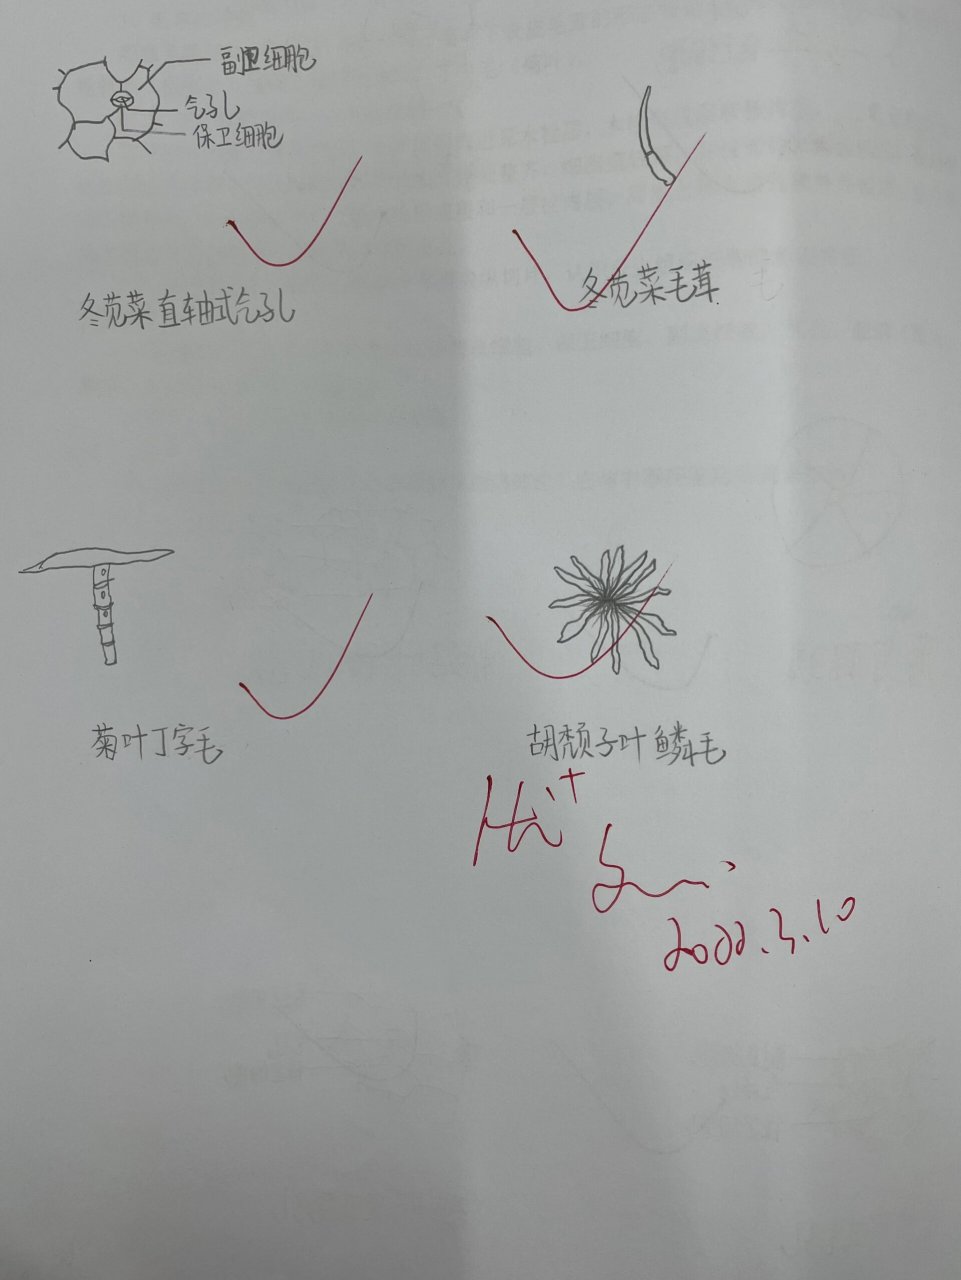 副卫细胞
气孔
保卫细胞
冬苋菜直轴式气孔
冬苋菜毛茸
菊叶丁字毛
胡颓子叶鳞毛
2022.3.10